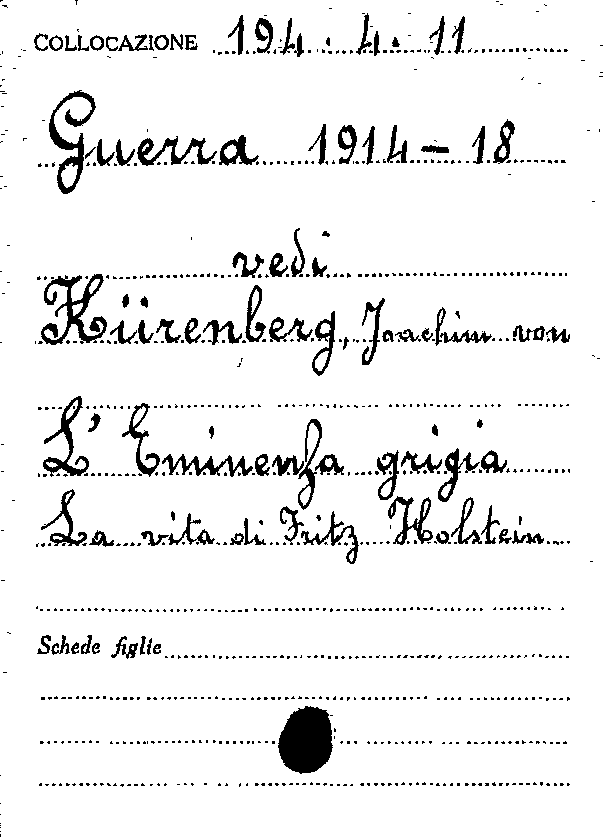 COLLOCAZIONE 194.4.11
Guerra 1914-18
vedi
Kürenberg, Joachim von
L'Eminenza grigia
La vita di Fritz Holstein
Schede figlie